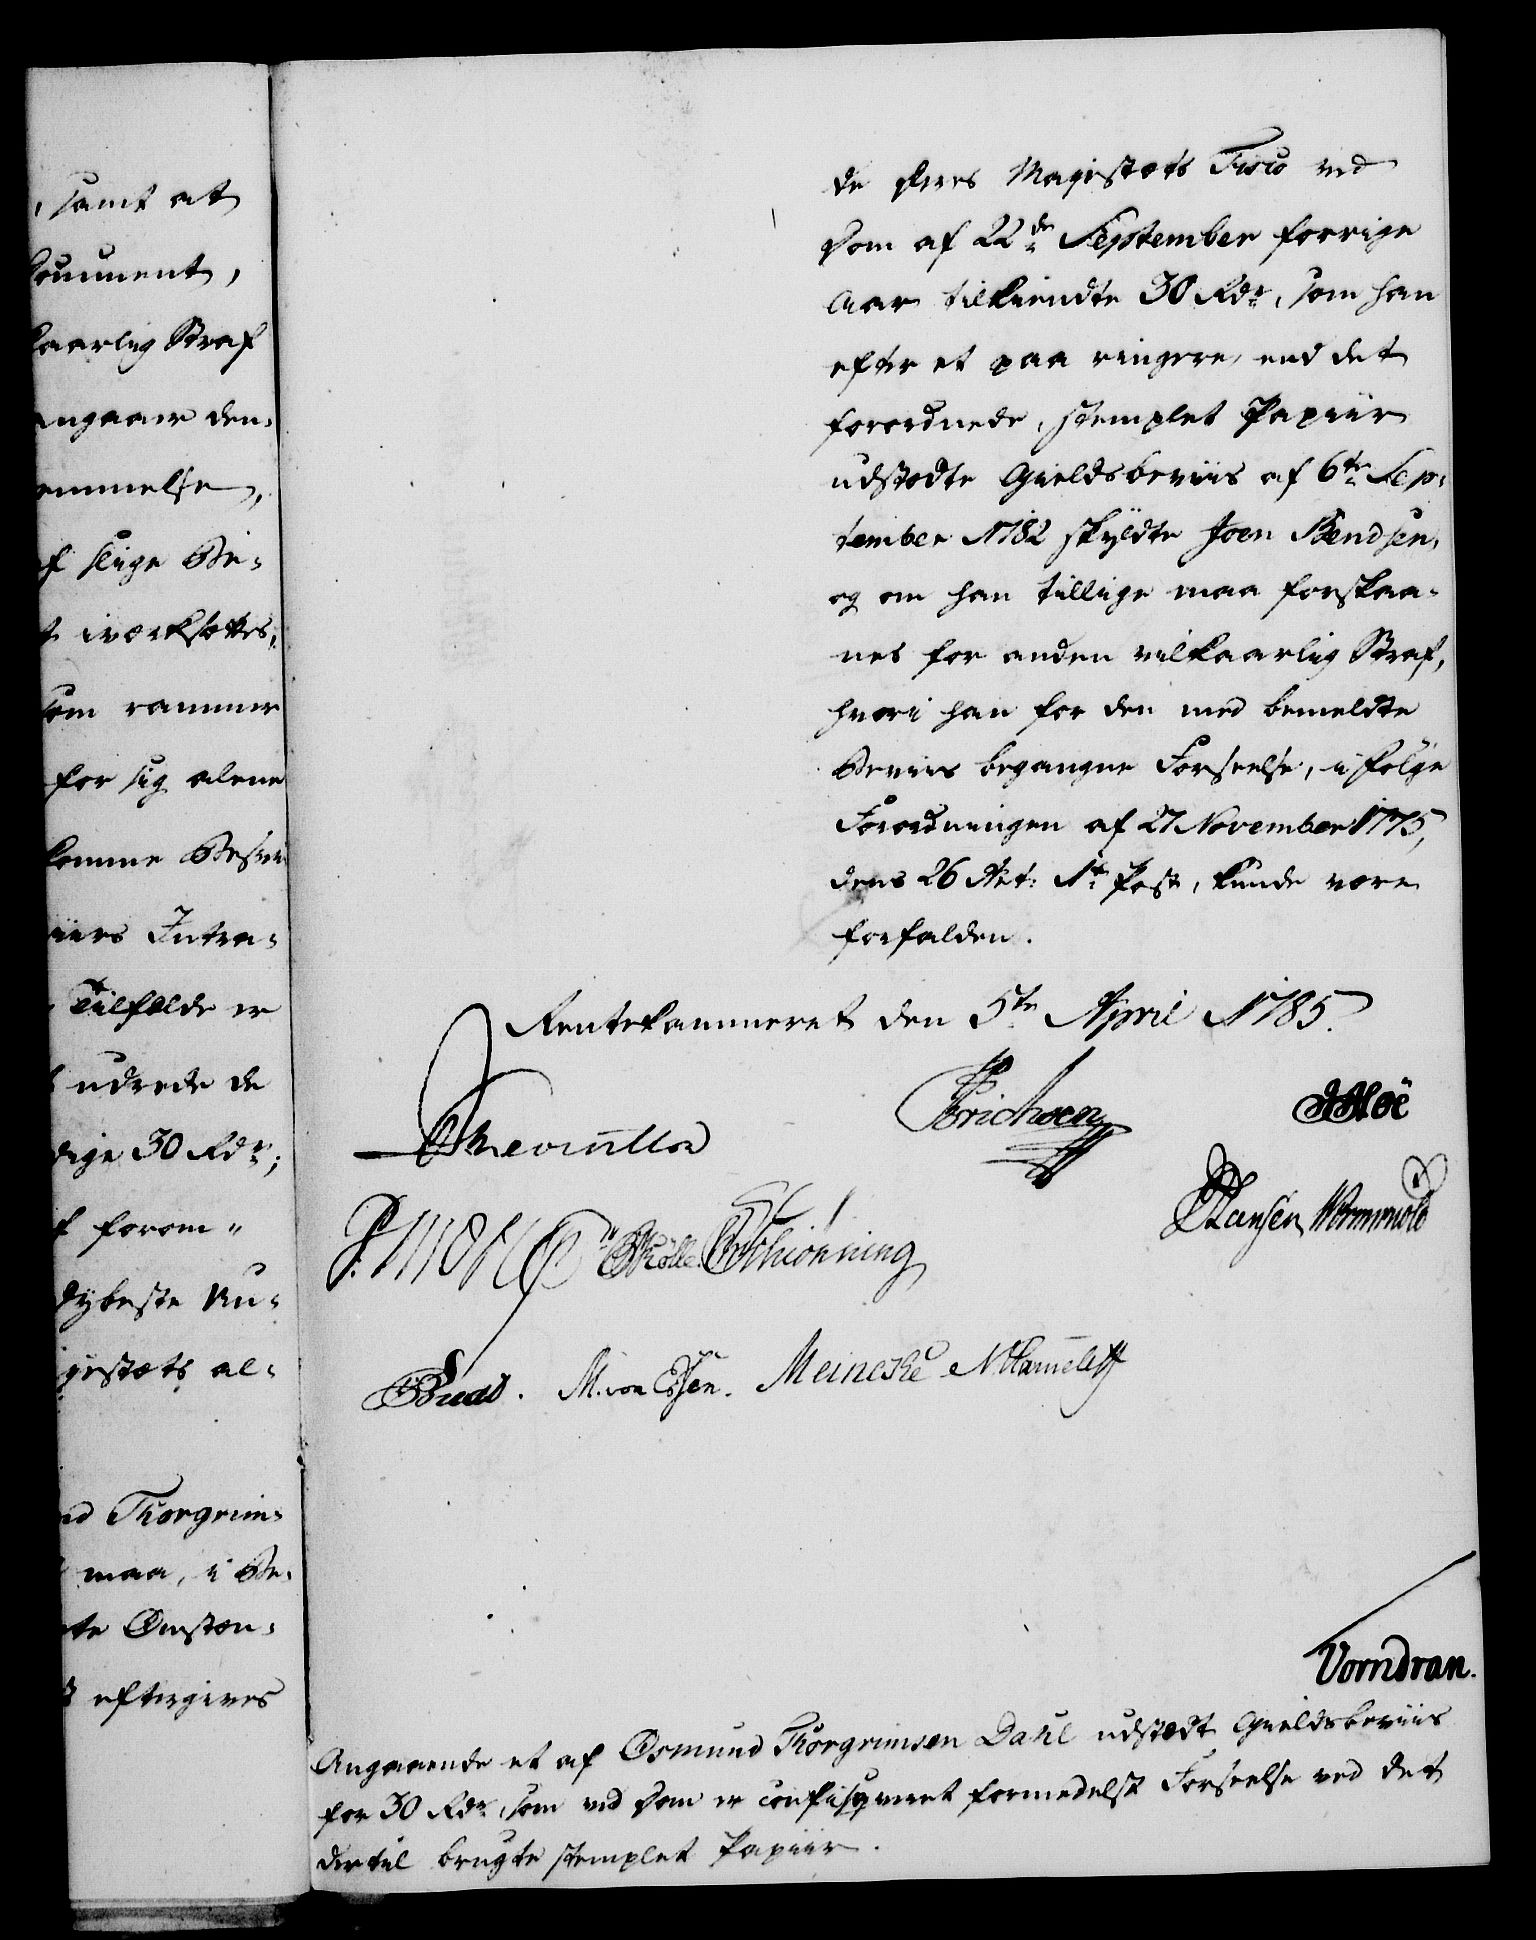 , samt at
cument,
kaarlig Straf
angaaer den-
emmelse,
f slige Be-
t iværksættes,
som rammer
for sig alene
komme Besvær
iirs Intra-
Tilfælde er
udrede de
dige 30 Rdr;
f forom-
dybeste Un-
jestæts al-
nd Thorgrim-
maa, i Be-
te Omstæn-
eftergives
de Deres Majestæts Fisco ved
Dom af 22de September forrige
Aar tilkiendte 30 Rdr, som han
efter et paa ringere, end det
forordnede, stemplet Papiir
udstædte Gieldsbeviis af 6te Sep-
tember 1782 skyldte Joen Bendsen,
og om han tillige maa forskaa-
nes for anden vilkaarlig Straf,
hvori han for den med bemeldte
Beviis begangne Forseelse, i følge
Forordningen af 27 November 1775,
dens 26 Art: 1te Post, kunde være
forfalden.
Rentekammeret den 5te April 1785.
Erichsen
Hansen Wormwold
Schiönning
M. von Essen. Meincke
Vorndran.
Angaaende et af Osmund Thorgrimsen Dahl udstædt Gieldsbeviis
for 30 Rdr, som ved Dom er confisqveret formedelst Forseelse ved det
dertil brugte stemplet Papiir.